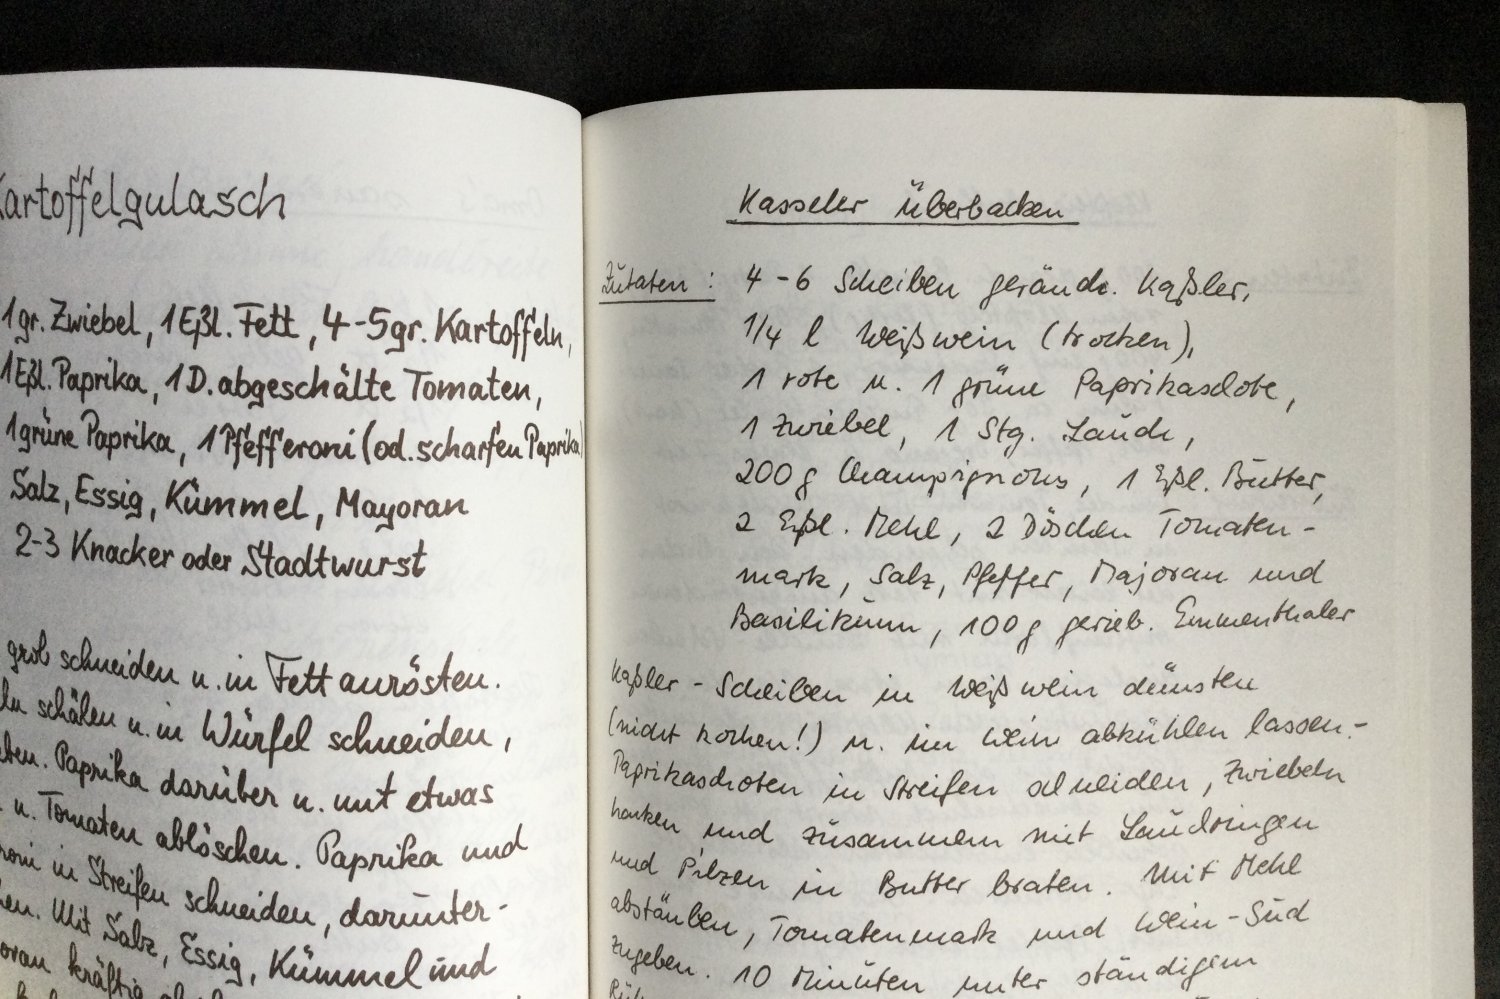 Kartoffelgulasch
1 gr. Zwiebel, 1 Eßl. Fett, 4-5 gr. Kartoffeln,
1 Eßl. Paprika, 1 D. abgeschälte Tomaten,
1 grüne Paprika, 1 Pfefferoni (od. scharfen Paprika)
Salz, Essig, Kümmel, Mayoran
2-3 Knacker oder Stadtwurst
grob schneiden u. in Fett anrösten.
schälen u. in Würfel schneiden,
Paprika darüber u. mit etwas
u. Tomaten ablöschen. Paprika und
in Streifen schneiden, darunter-
Mit Salz, Essig, Kümmel und
kräftig
Kasseler Überbacken
Zutaten: 4-6 Scheiben geräuch. Kaßler,
1/4 l Weißwein (trocken),
1 rote u. 1 grüne Paprikaschote,
1 Zwiebel, 1 Stg. Lauch,
200 g Champignons, 1 Eßl. Butter,
2 Eßl. Mehl, 2 Döschen Tomaten-
mark, Salz, Pfeffer, Majoran und
Basilikum, 100 g gerieb. Emmenthaler
Kaßler-Scheiben in Weißwein dünsten
(nicht kochen!) u. im Wein abkühlen lassen.-
Paprikaschoten in Streifen schneiden, Zwiebeln
hacken und zusammen mit Lauchringen
und Pilzen in Butter braten. Mit Mehl
abstäuben, Tomatenmark und Wein-Sud
zugeben. 10 Minuten unter ständigem